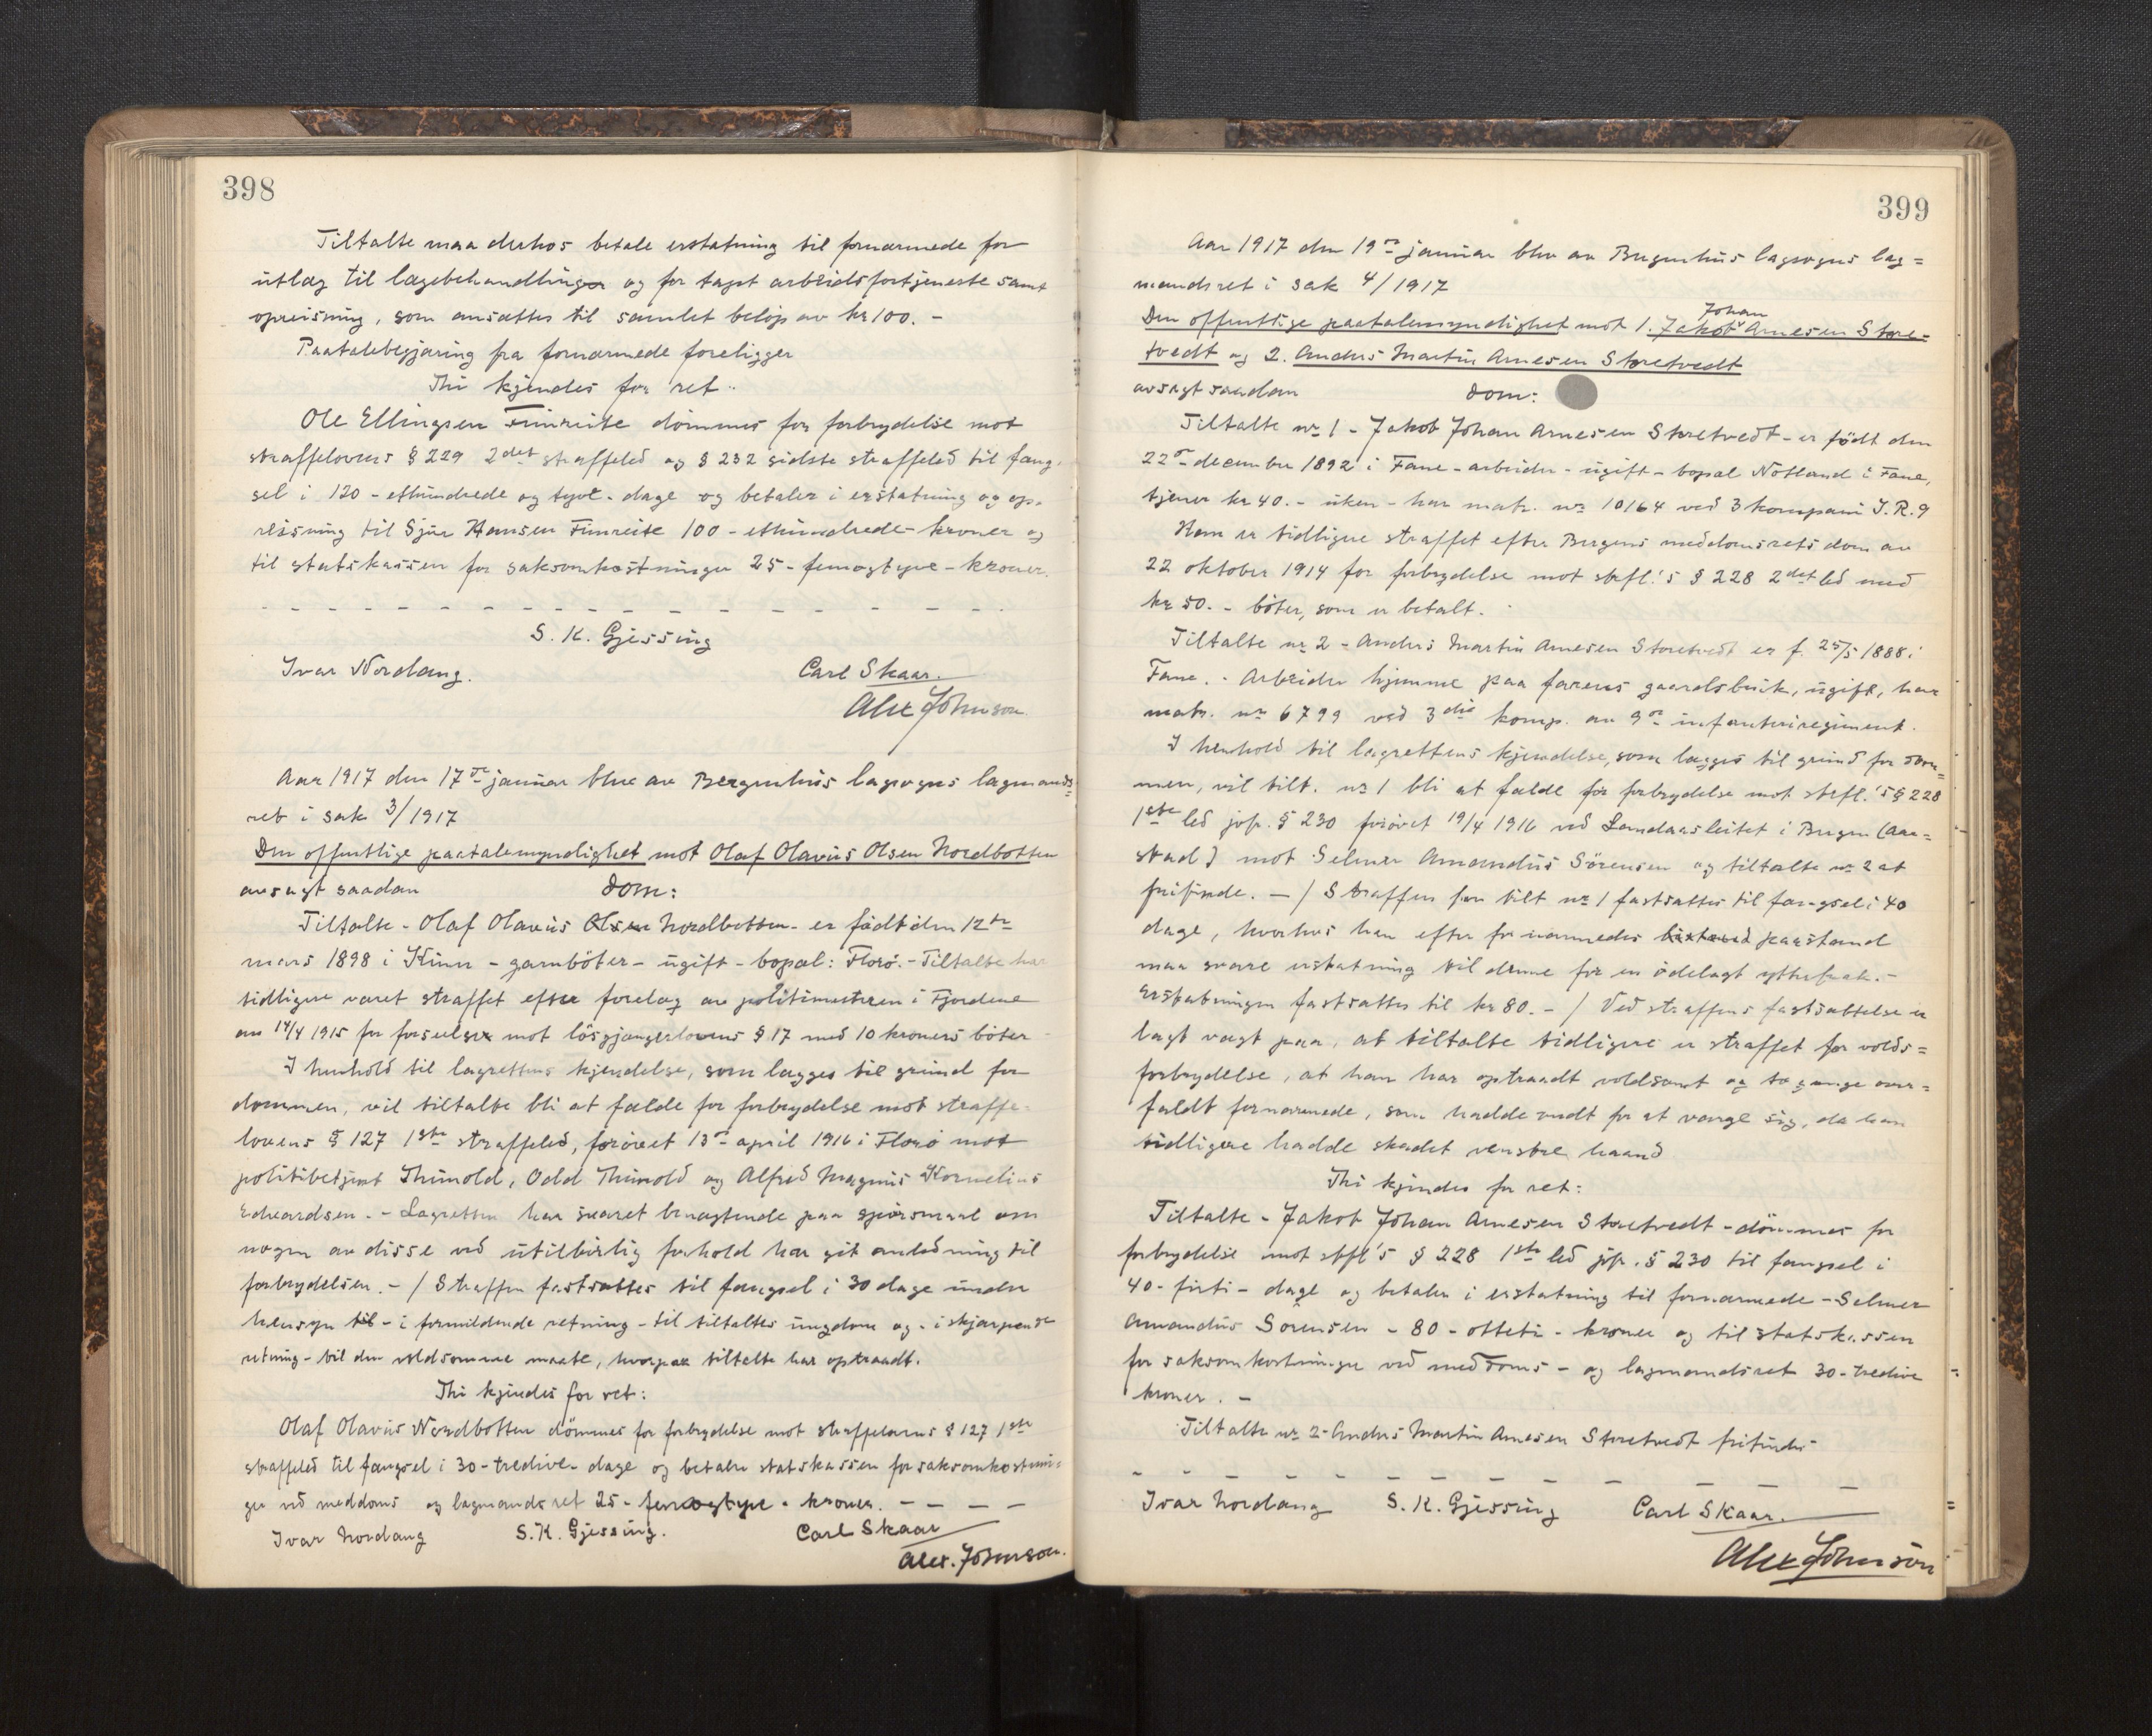 398
Tiltalte maa derhos betale erstatning til fornærmede for
utlæg til lægebehandlinger og for tapt arbeidsfortjeneste samt
opreisning, som ansættes til samlet beløp av kr 100. -
Paatalebegjæring fra fornærmede foreligger
Thi kjendes for ret:
Ole Ellingsen Finreite dømmes for forbrydelse mot
straffelovens § 229 2det straffeled og § 232 sidste straffeled til fæng-
sel i 120 - ethundrede og tyve - dage og betaler i erstatning og op-
reisning til Sjur Hansen Finreite 100 - ethundrede - kroner og
til statskassen for saksomkostninger 25 - femogtyve - kroner.
S. K. Gjessing
Ivar Nordang. Carl Skaar.
Alex Johnson
Aar 1917 den 17de januar blev av Bergenhus lagsogns lagmands-
ret i sak 3/1917
Den offentlige paatalemyndighet mot Olaf Olavus Olsen Nordbotten
avsagt saadan dom:
Tiltalte - Olaf Olavus Olsen Nordbotten - er født den 12te
mars 1898 i Kinn - garnbøter - ugift - bopæl: Florø. - Tiltalte har
tidligere været straffet efter forelæg av politimesteren i Fjordene
av 14/4 1915 for forseelser mot løsgjængerlovens § 17 med 10 kroners bøter
I henhold til lagrettens kjendelse, som lægges til grund for
dommen, vil tiltalte bli at fælde for forbrydelse mot straffe-
lovens § 127 1ste straffeled, forøvet 13de april 1916 i Florø mot
politibetjent Thunold, Odd Thunold og Alfred Magnus Kornelius
Edvardsen. - Lagretten har svaret benægtende paa spørsmaal om
nogen av disse ved utilbørlig forhold har git anledning til
forbrydelsen. - / Straffen fastsættes til fængsel i 30 dage under
hensyn til - i formildende retning - til tiltaltes ungdom og - i skjærpende
retning - til den voldsomme maate, hvorpaa tiltalte har optraadt.
Thi kjendes for ret:
Olaf Olavus Nordbotten dømmes for forbrydelse mot straffelovens § 127 1ste
straffeled til fængsel i 30 - tredive - dage og betaler statskassen for saksomkostnin-
ger ved meddoms og lagmandsret 25 - femogtyve - kroner. - - - -
Ivar Nordang S. K. Gjessing. Carl Skaar
Alex. Johnson.
399
Aar 1917 den 19de januar blev av Bergenhus lagsogns lag=
mandsret i sak 4/1917
Johan
Den offentlige paatalemyndighet mot 1. Jakob Arnesen Store-
tvedt og 2. Anders Martin Arnesen Storetvedt
avsagt saadan dom:
Tiltalte nr 1 - Jakob Johan Arnesen Storetvedt - er født den
22de december 1892 i Fane - arbeider - ugift - bopæl Nøtland i Fane,
tjener kr 40. - uken - har matr. nr 10164 ved 3 kompani I.R. 9
Han er tidligere straffet efter Bergens meddomsrets dom av
22 oktober 1914 for forbrydelse mot strfl.'s § 228 2det led med
kr 50. - bøter, som er betalt.
Tiltalte nr 2 - Anders Martin Arnesen Storetvedt er f. 25/5 1888 i
Fane. - Arbeider hjemme paa farens gaardsbruk, ugift, har
matr. nr 6799 ved 3die komp. av 9de infanteriregiment.
I henhold til lagrettens kjendelse, som lægges til grund for dom=
men, vil tilt. nr 1 bli at fælde for forbrydelse mot strfl.'s § 228
1ste led jvfr. § 230 forøvet 19/4 1916 ved Landaasleitet i Bergen (Aar=
stad) mot Selmer Amandus Sørensen og tiltalte nr 2 at
frifinde. - / Straffen for tilt nr 1 fastsættes til fængsel i 40
dage, hvorhos han efter fornærmedes paastand
maa svare erstatning til denne for en ødelagt ytterfrak. -
Erstatningen fastsættes til kr 80. - / Ved straffens fastsættelse er
lagt vegt paa, at tiltalte tidligere er straffet for volds=
forbrydelse, at han har optraadt voldsomt og to gange over=
faldt fornærmede, som hadde vondt for at værge sig, da han
tidligere hadde skadet venstre haand
Thi kjendes for ret:
Tiltalte - Jakob Johan Arnesen Storetvedt - dømmes for
forbrydelse mot strfl's § 228 1ste led jvfr. § 230 til fængsel i
40 - førti - dage og betaler i erstatning til fornærmede - Selmer
Amandus Sørensen - 80 - otteti - kroner og til statskassen
for saksomkostninger ved meddoms - og lagmandsret 30 - tredive
kroner. -
Tiltalte nr 2 - Anders Martin Arnesen Storetvedt frifindes
Ivar Nordang S. K. Gjessing Carl Skaar.
Alex Johnson